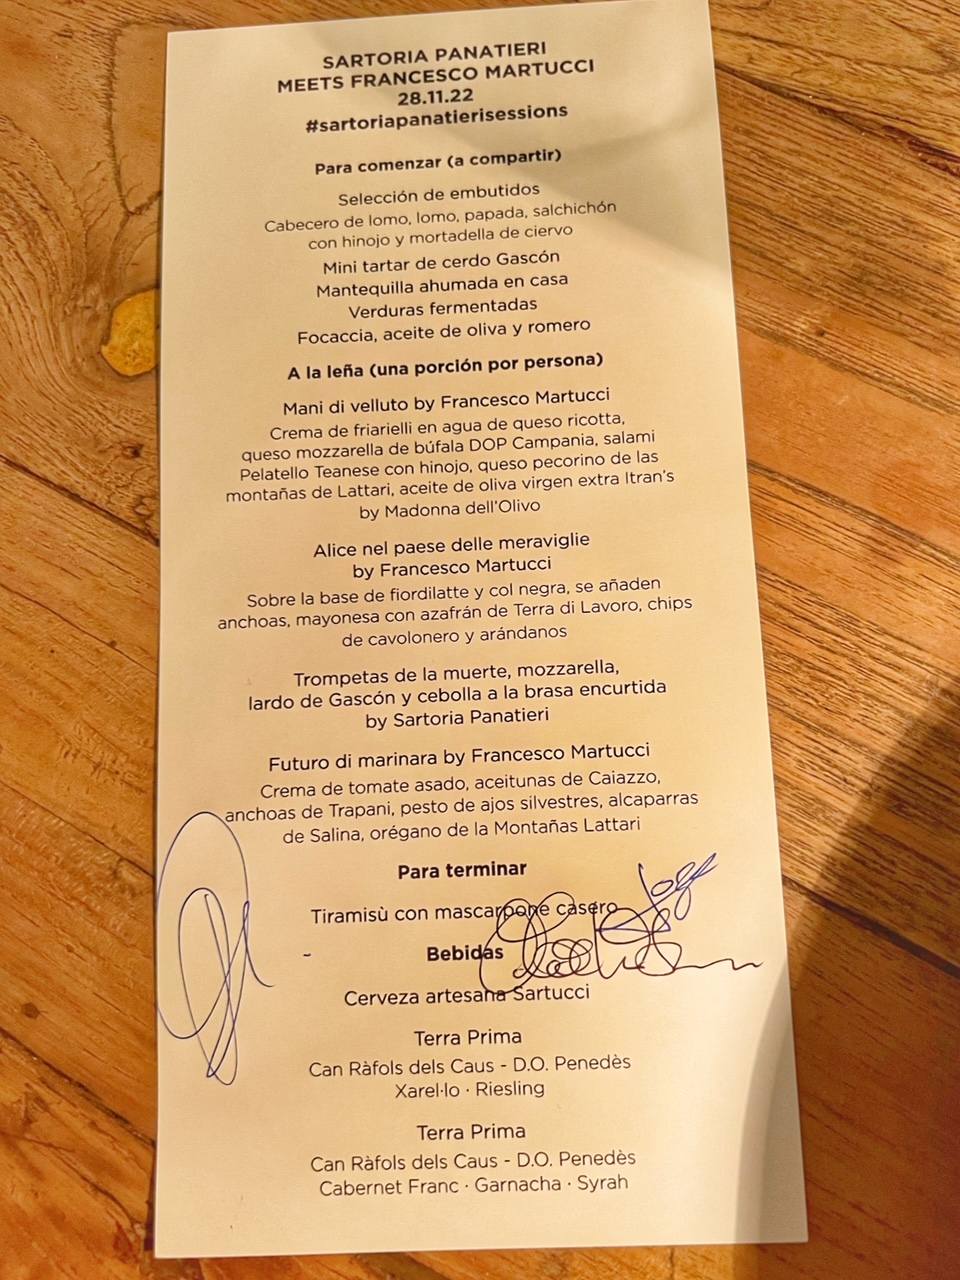 SARTORIA PANATIERI
MEETS FRANCESCO MARTUCCI
28.11.22
#sartoriapanatierisessions
Para comenzar (a compartir)
Selección de embutidos
Cabecero de lomo, lomo, papada, salchichón
con hinojo y mortadella de ciervo
Mini tartar de cerdo Gascón
Mantequilla ahumada en casa
Verduras fermentadas
Focaccia, aceite de oliva y romero
A la leña (una porción por persona)
Mani di velluto by Francesco Martucci
Crema de friarielli en agua de queso ricotta,
queso mozzarella de búfala DOP Campania, salami
Pelatello Teanese con hinojo, queso pecorino de las
montañas de Lattari, aceite de oliva virgen extra Itran's
by Madonna dell'Olivo
Alice nel paese delle meraviglie
by Francesco Martucci
Sobre la base de fiordilatte y col negra, se añaden
anchoas, mayonesa con azafrán de Terra di Lavoro, chips
de cavolonero y arándanos
Trompetas de la muerte, mozzarella,
lardo de Gascón y cebolla a la brasa encurtida
by Sartoria Panatieri
Futuro di marinara by Francesco Martucci
Crema de tomate asado, aceitunas de Caiazzo,
anchoas de Trapani, pesto de ajos silvestres, alcaparras
de Salina, orégano de la Montañas Lattari
Para terminar
Tiramisù con mascarpone casero
Bebidas
Cerveza artesana Sartucci
Terra Prima
Can Ràfols dels Caus - D.O. Penedès
Xarel·lo · Riesling
Terra Prima
Can Ràfols dels Caus - D.O. Penedès
Cabernet Franc · Garnacha · Syrah